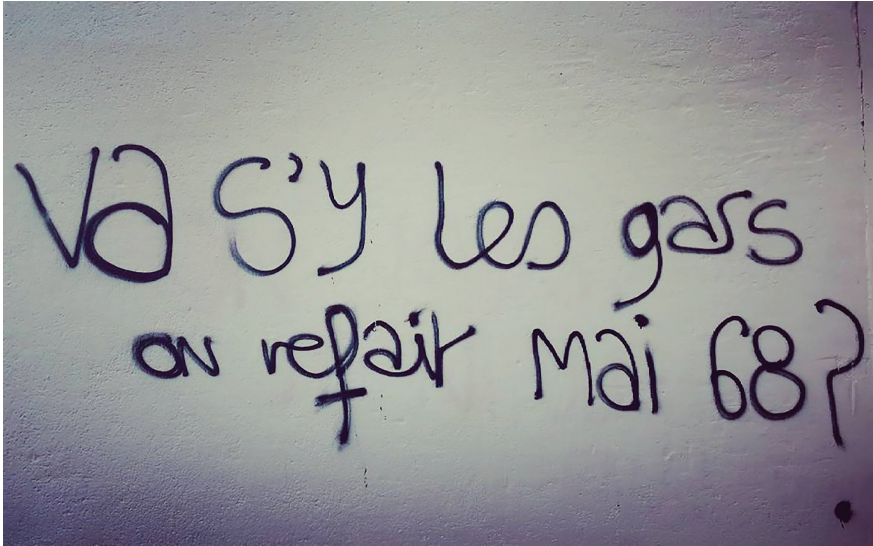 Va s'y les gars
on refait Mai 68?